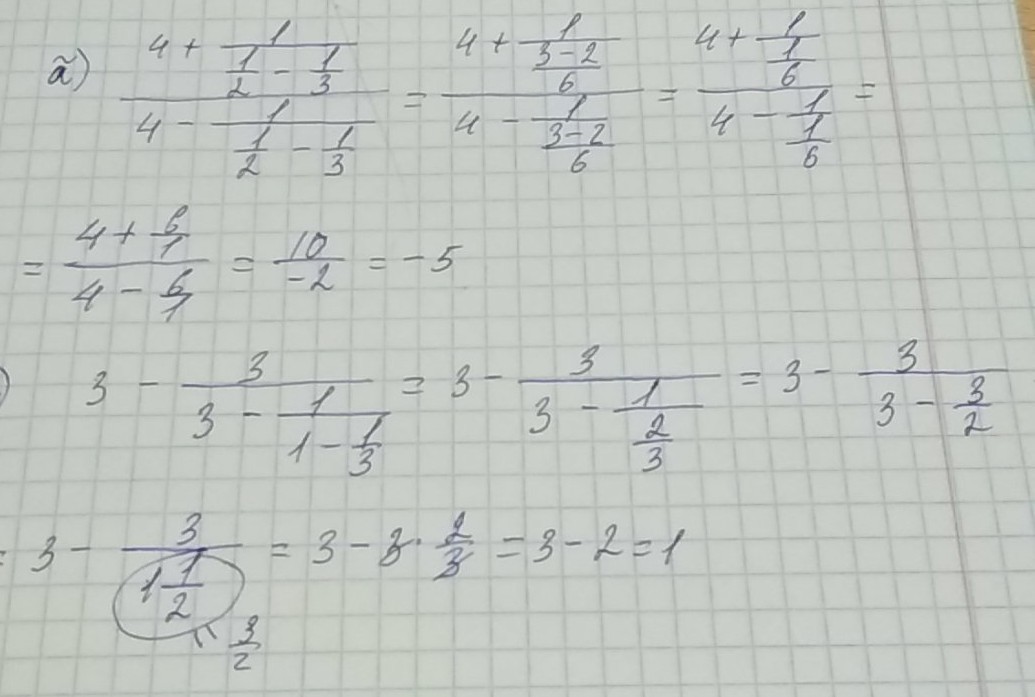 ã) \frac{4 + \frac{1}{\frac{1}{2} - \frac{1}{3}}}{4 - \frac{1}{\frac{1}{2} - \frac{1}{3}}} = \frac{4 + \frac{1}{\frac{3-2}{6}}}{4 - \frac{1}{\frac{3-2}{6}}} = \frac{4 + \frac{1}{\frac{1}{6}}}{4 - \frac{1}{\frac{1}{6}}} =
= \frac{4 + \frac{6}{1}}{4 - \frac{6}{1}} = \frac{10}{-2} = -5
) 3 - \frac{3}{3 - \frac{1}{1 - \frac{1}{3}}} = 3 - \frac{3}{3 - \frac{1}{\frac{2}{3}}} = 3 - \frac{3}{3 - \frac{3}{2}}
= 3 - \frac{3}{1\frac{1}{2}} = 3 - 3 \cdot \frac{2}{3} = 3 - 2 = 1
" \frac{3}{2}